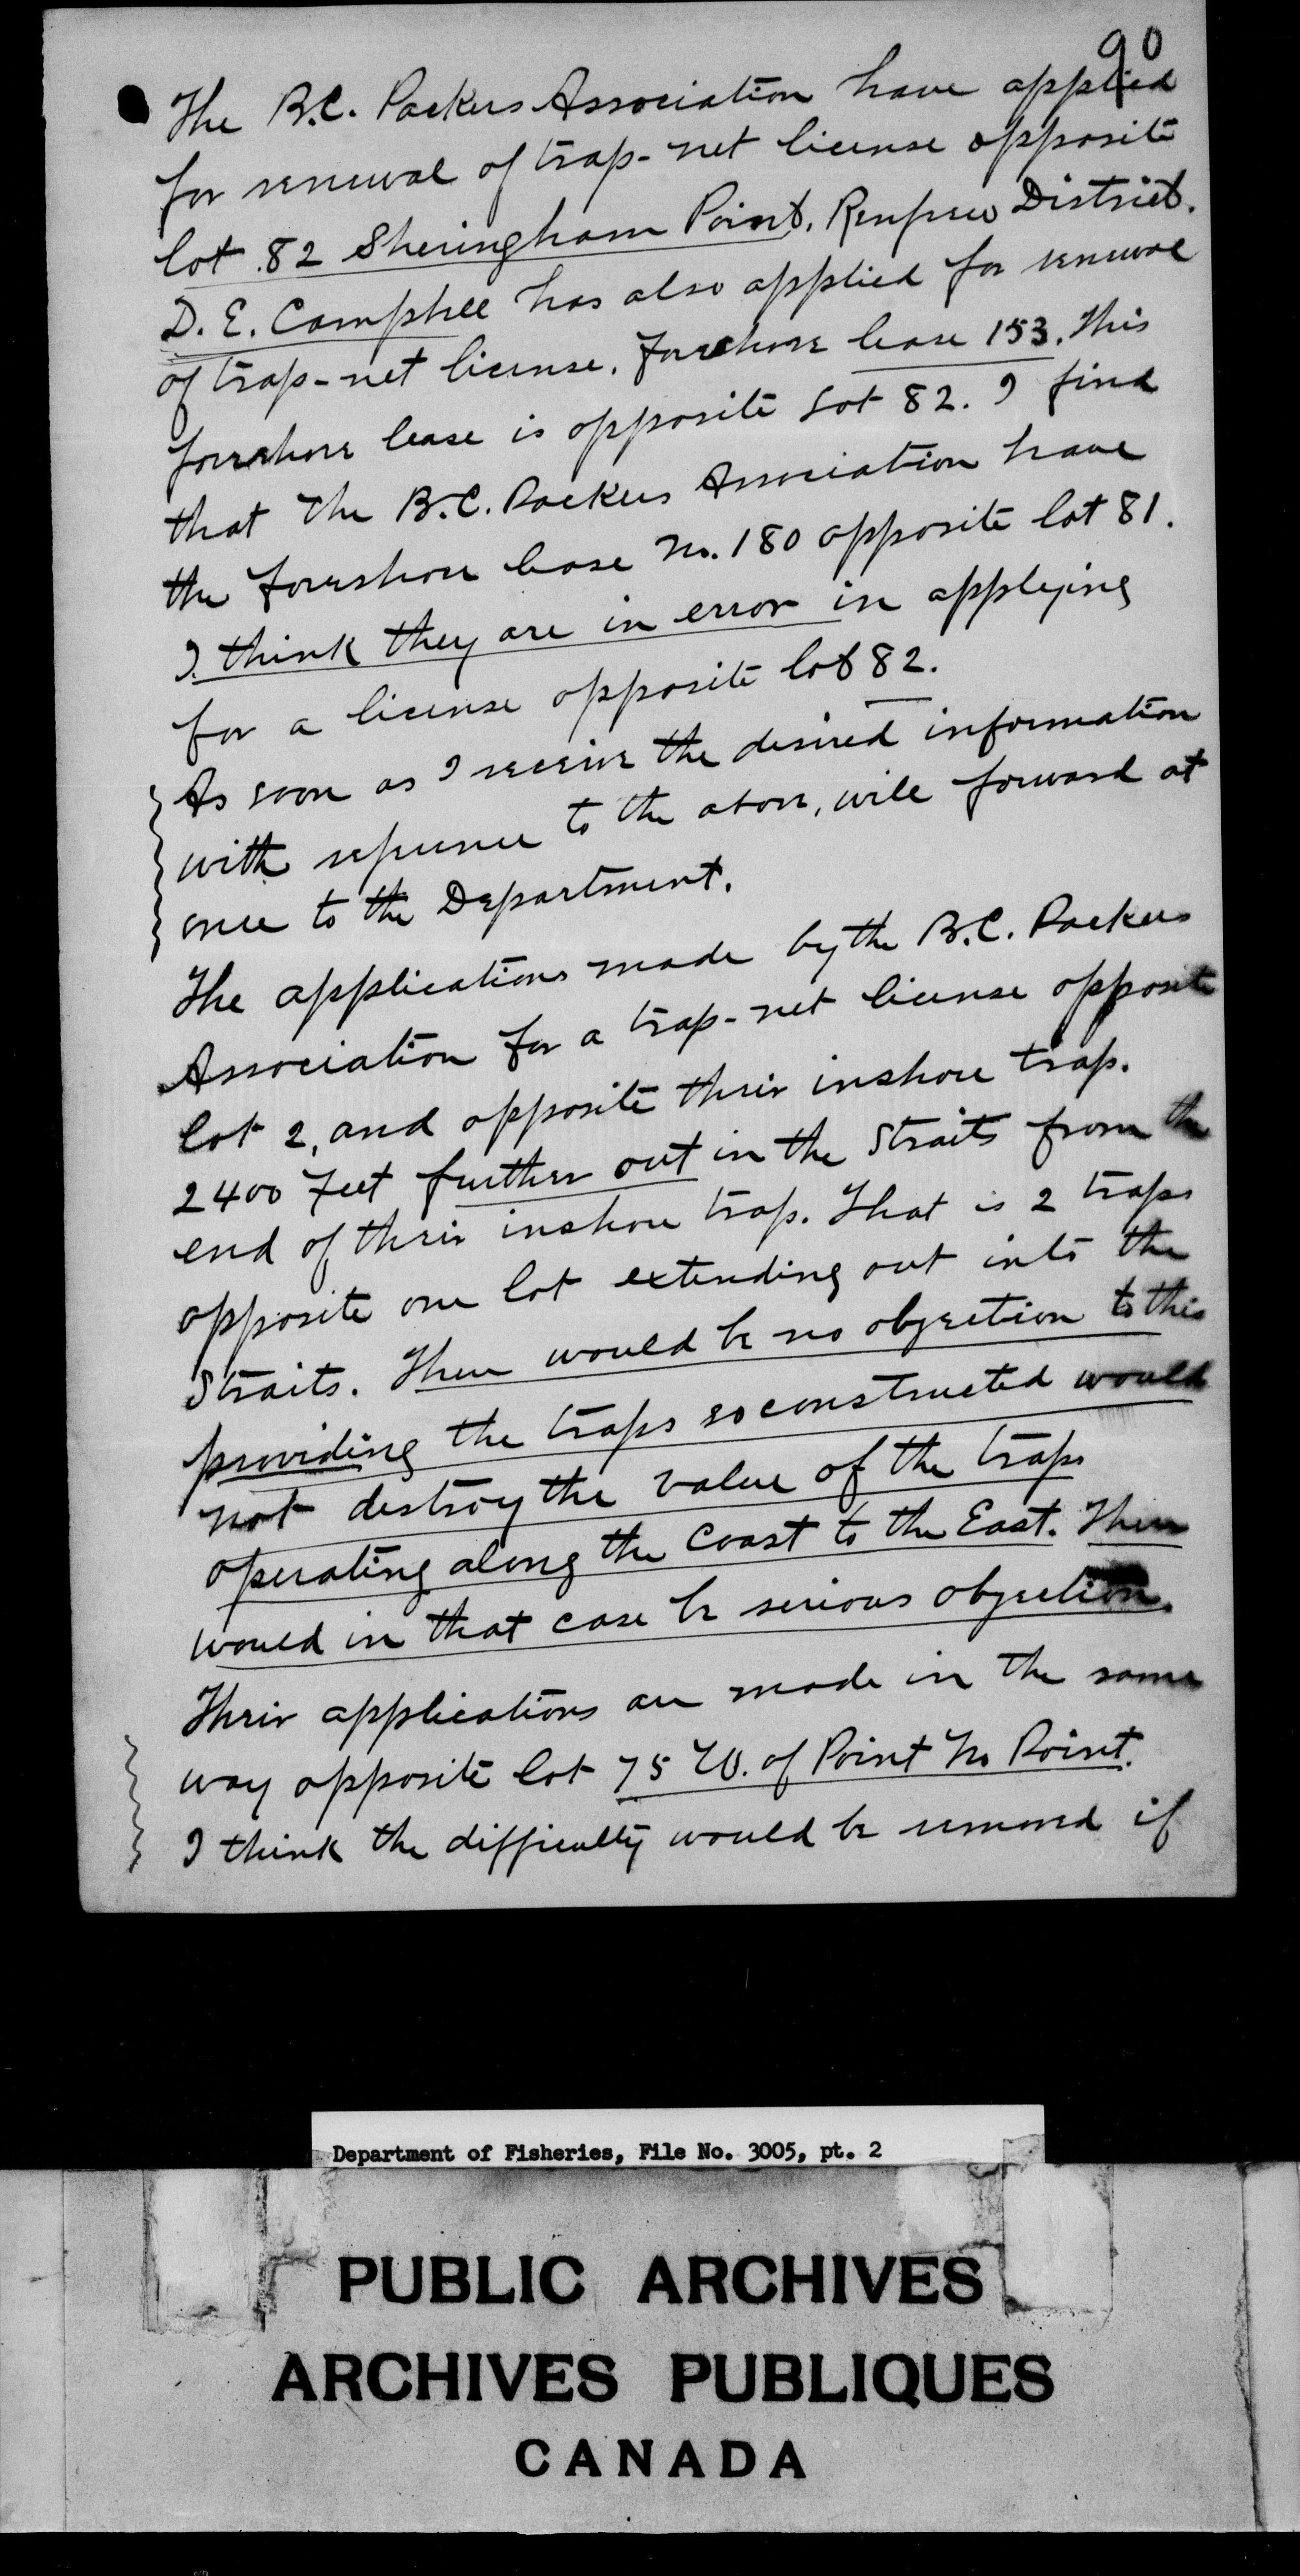 90
The B.C. Packers Association have applied
for renewal of trap-net license opposite
lot 82 Sheringham Point, Renfrew District.
D. E. Campbell has also applied for renewal
of trap-net license. foreshore lease 153. This
foreshore lease is opposite Lot 82. I find
that the B.C. Packers Association have
the foreshore lease No. 180 opposite lot 81.
I think they are in error in applying
for a license opposite lot 82.
As soon as I receive the desired information
with reference to the above, will forward at
once to the Department.
The applications made by the B.C. Packers
Association for a trap-net license opposite
lot 2, and opposite their inshore trap.
2400 feet further out in the Straits from the
end of their inshore trap. That is 2 traps
opposite one lot extending out into the
Straits. There would be no objection to this
providing the traps so constructed would
not destroy the value of the traps
operating along the Coast to the East. There
would in that case be serious objection.
Their applications are made in the same
way opposite lot 75 W. of Point No Point.
I think the difficulty would be removed if
Department of Fisheries, File No. 3005, pt. 2
PUBLIC ARCHIVES
ARCHIVES PUBLIQUES
CANADA